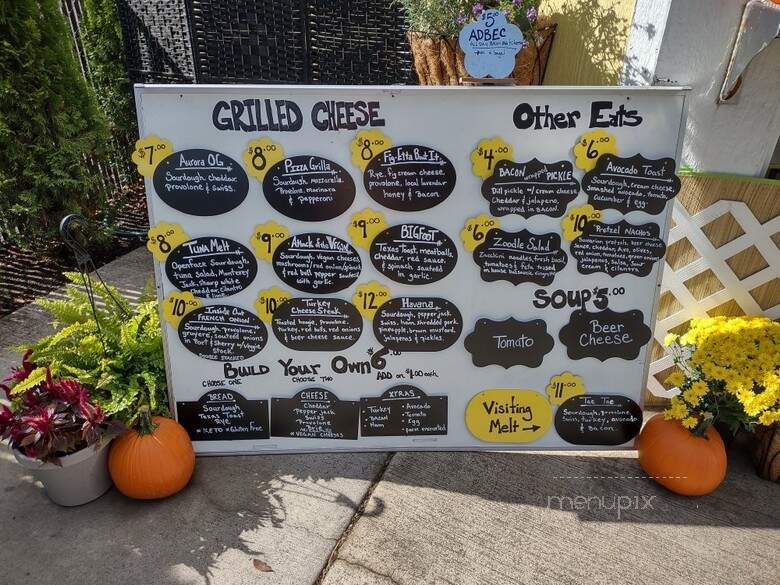 $5.00
ADBEC
GRILLED CHEESE
Other Eats
$7.00
Aurora OG
Sourdough, cheddar,
provolone & swiss.
$8.00
Pizza Grilla
Sourdough, mozzarella,
marinara
& pepperoni
$8.00
Fig-Etta Bout It
Rye, fig cream cheese,
provolone, local lavender
honey & bacon.
$4.00
BACON wrapped PICKLE
Dill pickle w/ cream cheese
Cheddar & jalapeno,
wrapped in bacon.
$6.00
Avocado Toast
Sourdough, cream cheese,
Smashed avocado, tomato,
cucumber & egg.
$8.00
Tuna Melt
Openface Sourdough,
tuna salad, Monterey
Jack, sharp white
Cheddar, cilantro
& lime
$9.00
Attack of the Vegan
Sourdough, vegan cheese,
mushrooms, red onion, spinach
& red bell pepper sautéed
with garlic.
$9.00
BIGFOOT
Texas Toast, meatballs,
cheddar, red sauce,
& spinach sautéed
in garlic.
$6.00
Zoodle Salad
Zucchini noodles, fresh basil,
tomatoes & feta tossed
in house balsamic
$10.00
Pretzel Nachos
Bavarian pretzels, beer cheese
red onion, tomatoes,
jalapenos, salsa, sour
cream & cilantro
$10.00
Inside Out
French Onion
Sourdough, provolone,
gruyere, sautéed onions
in Port & sherry w/ veggie
stock.
$10.00
Turkey
Cheese Steak
Toasted hoagie, provolone,
turkey, red bells, red onions
& beer cheese sauce
$12.00
Havana
Sourdough, pepper jack
Swiss, ham, shredded pork
pineapple, brown mustard,
jalapenos & pickles.
SOUPS 5.00
Tomato
Beer
Cheese
Build Your Own $6.00
CHOOSE ONE
CHOOSE TWO
ADD ON $1.00 each
BREAD
Sourdough
Texas Toast
Rye
* KETO * Gluten Free
CHEESE
Cheddar
Pepper jack
Swiss
Provolone
Brie
* VEGAN CHEESES
XTRAS
Turkey • Avocado
Bacon • Tomato
Ham • Egg
Visiting
Melt →
$11.00
Tic Tac
Sourdough, provolone,
Swiss, turkey, avocado
& bacon
menupix